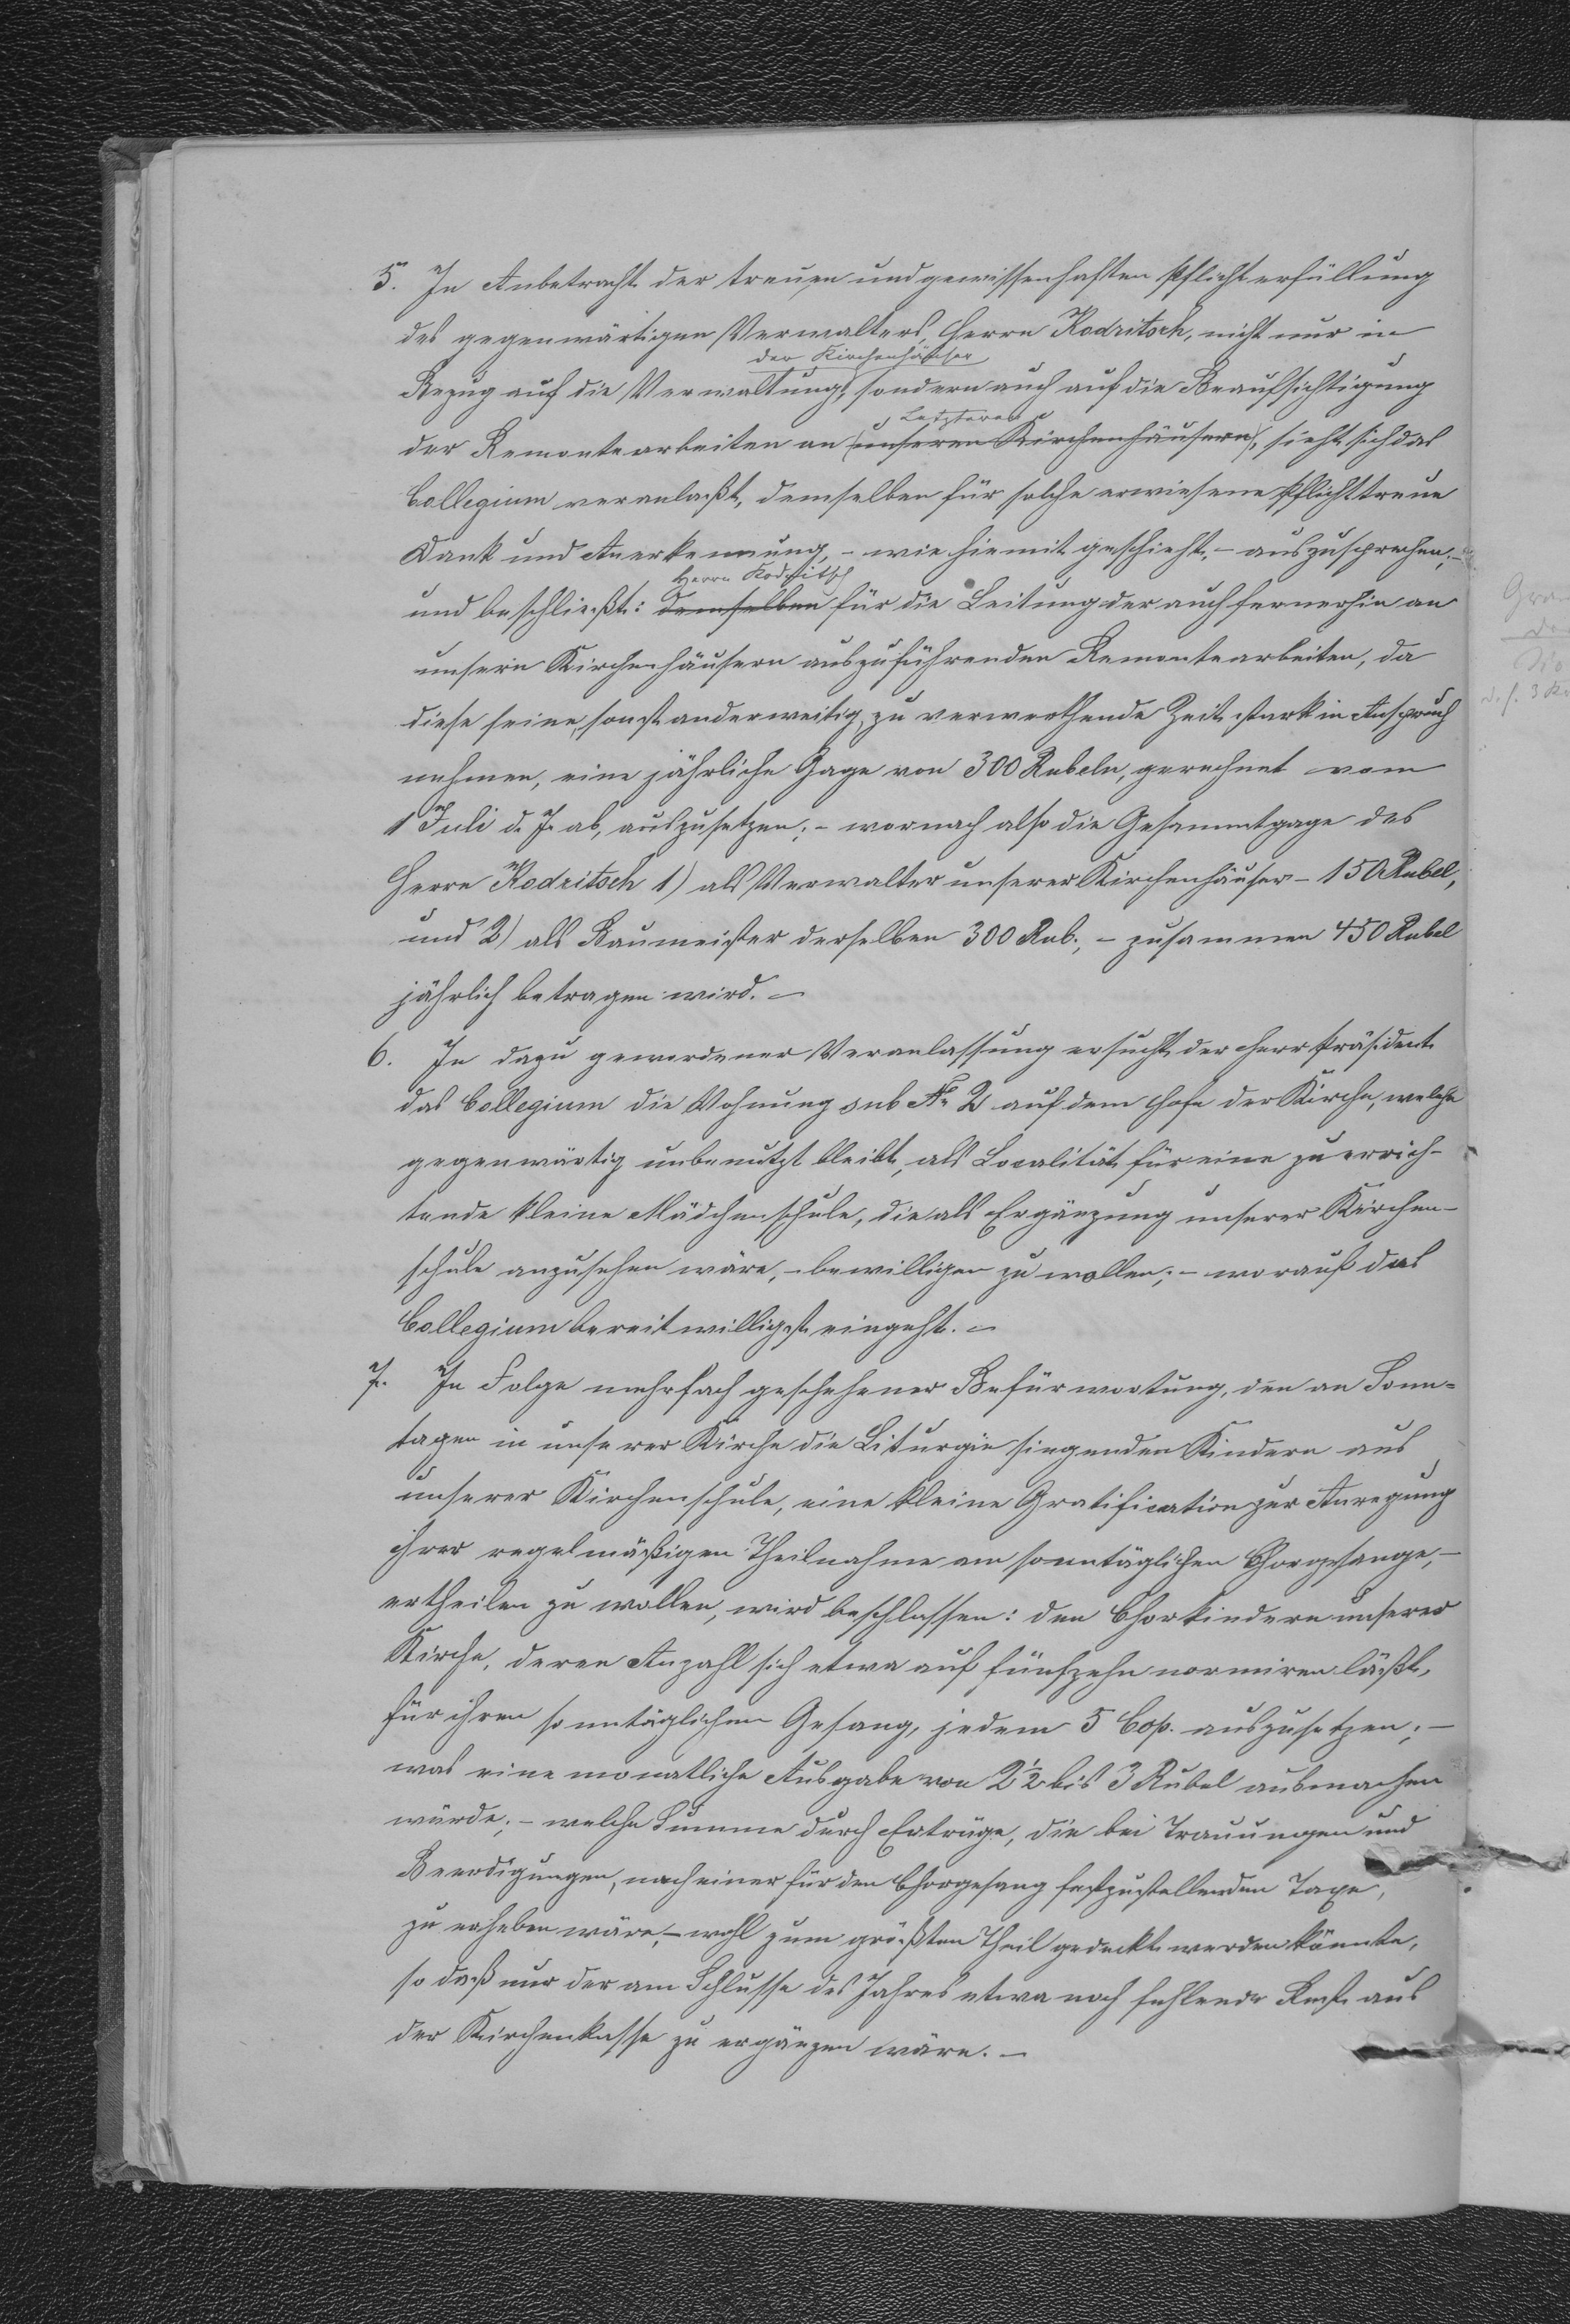 5. In Anbetracht der treuen und gewissenhaften Pflichterfüllung
des gegenwärtigen Verwalters, Herrn Kodzitsch, nicht nur in
der Kirchenhäuser
Bezug auf die Verwaltung, sondern auch auf die Beaufsichtigung
Letzteren
der Remontearbeiten an (unseren Kirchenhäusern), sieht sich das
Collegium veranlaßt, demselben für solche erwiesene Pflichttreue
Dank und Anerkennung, - wie hiemit geschieht, - auszusprechen; -
Herrn Kodzitsch
und beschließt: demselben für die Leitung der auch fernerhin an
unsern Kirchenhäusern auszuführenden Remontearbeiten, da
diese seine, sonst anderweitig zu verwerthende Zeit stark in Anspruch
nehmen, eine jährliche Gage von 300 Rubeln, gerechnet vom
1 Juli d. J. ab, auszusetzen; - wornach also die Gesammtgage des
Herrn Kodzitsch 1) als Verwalter unserer Kirchenhäuser - 150 Rubel,
und 2) als Baumeister derselben 300 Rub., - zusammen 450 Rubel
jährlich betragen wird. -
6. In dazu gewordener Veranlassung ersucht der Herr Präsident
das Collegium die Wohnung sub № 2 auf dem Hofe der Kirche, welche
gegenwärtig unbenutzt bleibt, als Localität für eine zu errich-
tende kleine Mädchenschule, die als Ergänzung unserer Kirchen-
schule anzusehen wäre, - bewilligen zu wollen; - worauf das
Collegium bereitwilligst eingeht. -
7. In Folge mehrfach geschehener Befürwortung, den an Sonn-
tagen in unserer Kirche die Liturgie singenden Kindern aus
unserer Kirchenschule, eine kleine Gratification zur Anregung
ihrer regelmäßigen Theilnahme am sonntäglichen Chorgesange, -
ertheilen zu wollen, wird beschlossen: den Chorkindern unserer
Kirche, deren Anzahl sich etwa auf fünfzehn normiren läßt,
für ihren sonntäglichen Gesang, jedem 5 Cop. auszusetzen; -
was eine monatliche Ausgabe von 2½ bis 3 Rubel ausmachen
würde; - welche Summe durch Erträge, die bei Trauungen und
Beerdigungen, nach einer für den Chorgesang festzustellenden Taxe,
zu erheben wäre, - wohl zum größten Theil gedeckt werden könnte,
so daß nur der am Schlusse des Jahres etwa noch fehlende Rest aus
der Kirchenkasse zu ergänzen wäre. -